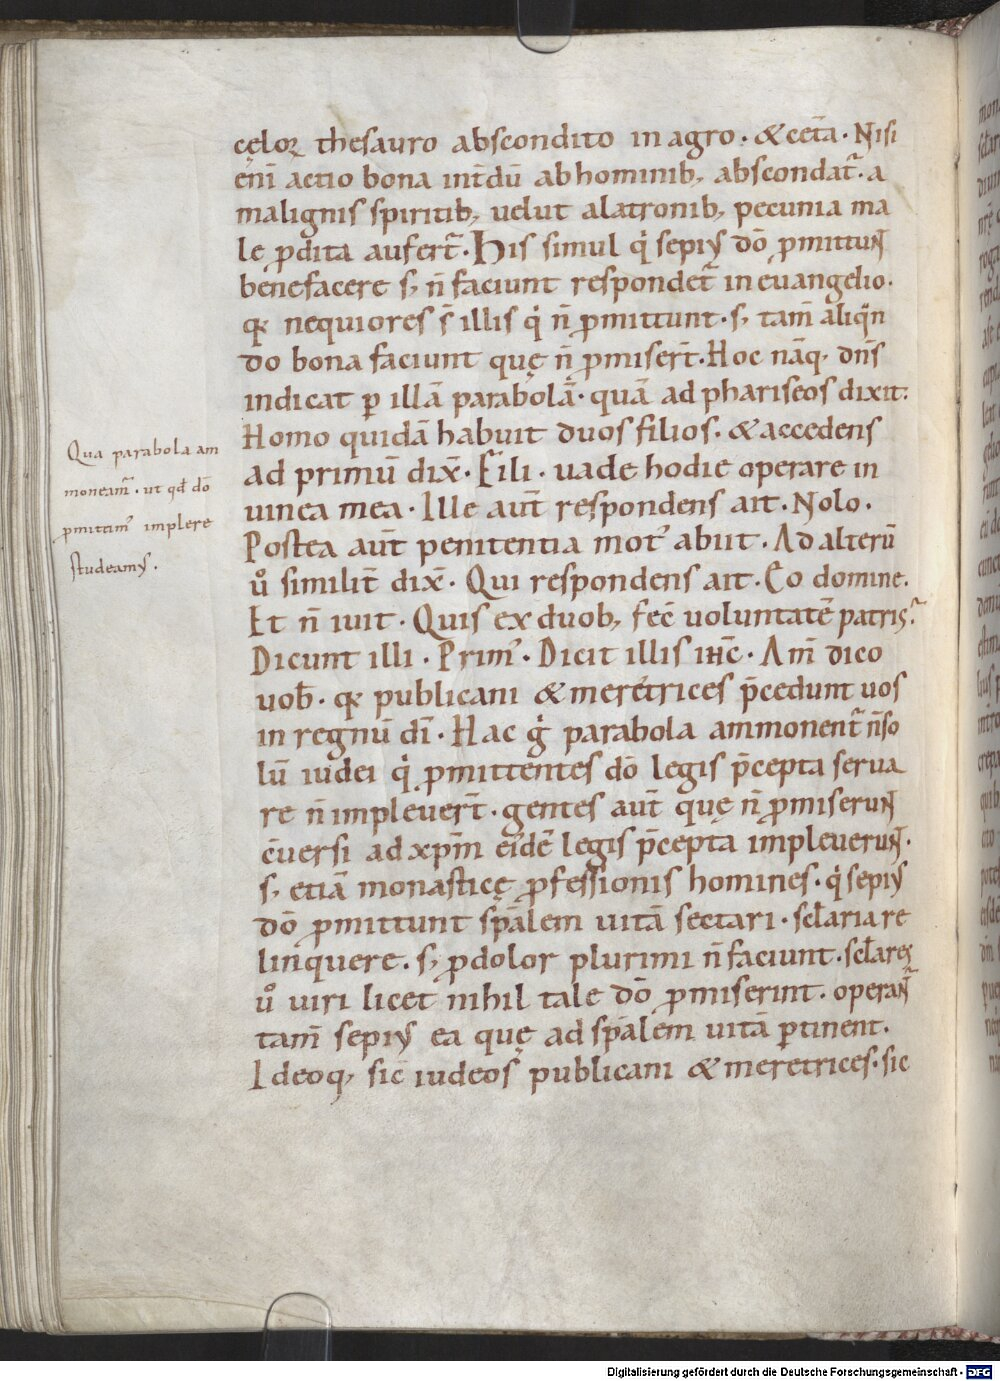 cęloꝝ thesauro abscondito in agro · & cet̄a · Nisi
ēni actio bona int̄dū ab hominib; abscondat᷑ · a
malignis spiritib; uelut a latronib; pecunia ma
le ꝑdita aufert᷑ · His simul q̇ sepiꝰ dō ꝓmittunt
benefacere s; n̄ faciunt respondet᷑ in euangelio ·
qꝛ nequiores s̄ illis q̇ n̄ ꝓmittunt · s; tam̄ aliqn̄
do bona faciunt quę n̄ ꝓmiser̄t · Hoc nāq; dn̄s
indicat ꝑ illā parabolā · quā ad phariseos dixit:
Homo quidā habuit duos filios · & accedens
ad primū dix̄ · Fili · uade hodie operare in
uinea mea · Ille aut̄ respondens ait · Nolo ·
Postea aut̄ penitentia motꝰ abiit · Ad alterū
uͦ similit̄ dix̄ · Qui respondens ait · Eo domine ·
Et n̄ iuit · Quis ex duob; fec̄ uoluntatē patris?
Dicunt illi · Primꝰ · Dicit illis ih̄c · Am̄ dico
uob̄ · qꝛ publicani & meretrices p̄cedunt uos
in regnū dī · Hac g̍ parabola ammonent᷑ n̄ so
lū iudei q̇ ꝓmittentes dō legis p̄cepta serua
re n̄ impleuer̄t · gentes aut̄ quę n̄ ꝓmiserunt
c̄uersi ad xp̄m eidē legis p̄cepta impleuerunt ·
s; etiā monasticę ꝓfessionis homines · q̇ sepiꝰ
dō ꝓmittunt sp̄alem uitā sectari · sc̄laria re
linquere · s; ꝓdolor plurimi n̄ faciunt · sc̄lares
uͦ uiri licet nihil tale dō ꝓmiserint · operant᷑
tam̄ sepiꝰ ea quę ad sp̄alem uitā ꝑtinent ·
Ideoq; sic̄ iudeos publicani & meretrices · sic
Qua parabola am
moneam᷑ · ut qd̄ dō
ꝓmittimꝰ implere
studeamꝰ ·
Digitalisierung gefördert durch die Deutsche Forschungsgemeinschaft - DFG